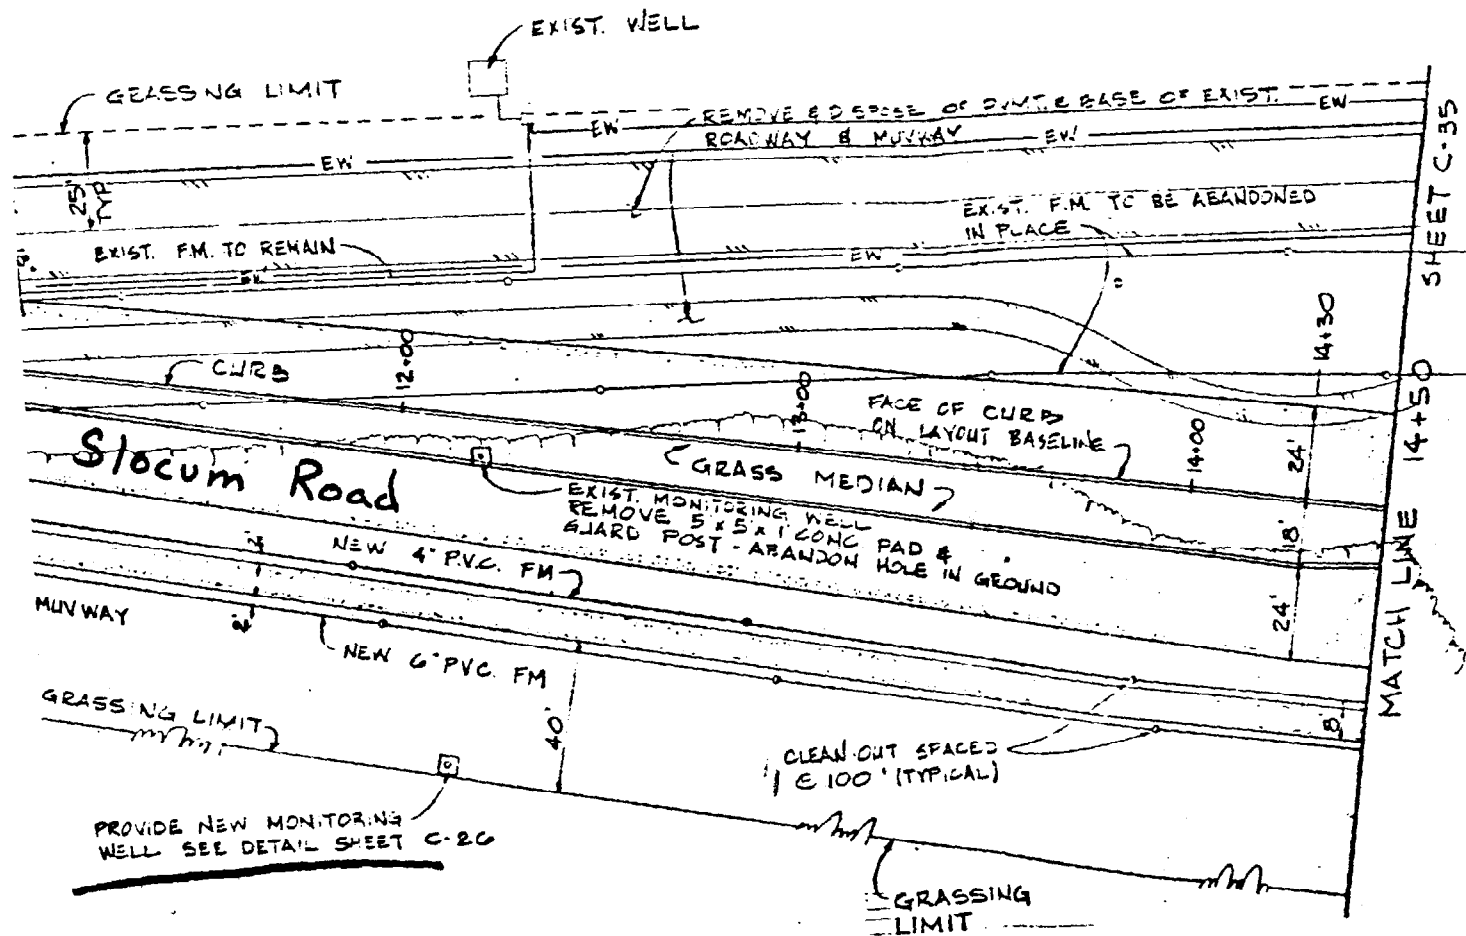 EXIST. WELL
GRASSING LIMIT
EW
EW
REMOVE & DISPOSE OF PVMT. & BASE OF EXIST.
ROADWAY & MUVWAY
EW
EW
25'
TYP
EXIST. F.M. TO REMAIN
EXIST. F.M. TO BE ABANDONED
IN PLACE
EW
SHEET C-35
CURB
12+00
13+00
14+00
14+30
FACE OF CURB
ON LAYOUT BASELINE
Slocum Road
GRASS MEDIAN
EXIST. MONITORING WELL
REMOVE 5 x 5 x 1 CONC PAD &
GUARD POST - ABANDON HOLE IN GROUND
24'
18'
24'
8'
MATCH LINE 14+50
NEW 4" P.V.C. FM
2'
2'
MUVWAY
NEW 6" P.V.C. FM
40'
GRASSING LIMIT
CLEAN-OUT SPACED
@ 100' (TYPICAL)
PROVIDE NEW MONITORING
WELL SEE DETAIL SHEET C-26
GRASSING
LIMIT